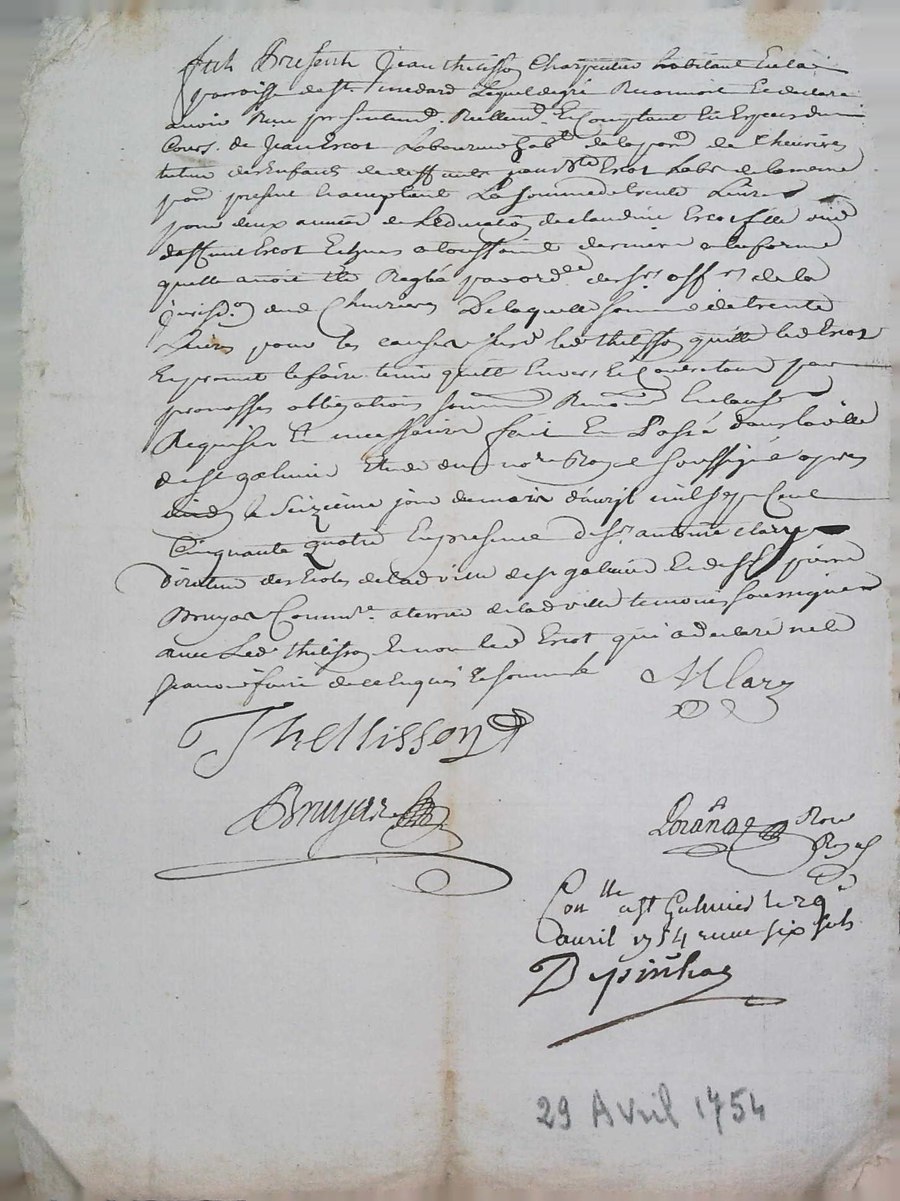 fut Present Jean thelisson Charpentier habitant en la
parroisse de st. medard Lequel de gré Reconnoit Et declare
avoir Receu presentemt. Reellemt. Et Comptant En Especes du
Cours. de Jean Escot Laboureur habt. de la parr. de Cheurieres
tuteur des Enfants de deffunt Escot Labr. de la meme
parr. present Et acceptant La somme de trente Livres
pour deux années de L'éducation de claudine Escot fille
deffunt Escot Echues a toussaint derniere a la forme
quelle avoit été Reglée par ordce. des srs. offrs. de la
jurisdn. dud Cheurieres De laquelle somme de trente
Livres pour les causes susd led thelisson quitte led Escot
Et promet le faire tenir quitte Envers Et Contre tous par
promesses obligations soumissions Renonc. Et clauses
Requises Et necessaires fait Et Passé dans la ville
de st galmier Etude du nore. Royal soussigné apres
midy le seizieme jour du mois d'avril mil sept Cent
Cinquante quatre En presence de sr. antoine clary
Directeur des Ecoles de lad ville de st galmier Et de sr pierre
Bruyas Commre. a terrier de lad ville temoins soussignés
avec Led thelisson Et non led Escot qui a declaré ne le
scavoir faire de ce Enquis Et sommé
A Clary
Thellisson
Bruyas
Dorana Nore Royal
Conlle a st Galmier le 29e
avril 1754 receu six sols
Depinhac
29 Avril 1754